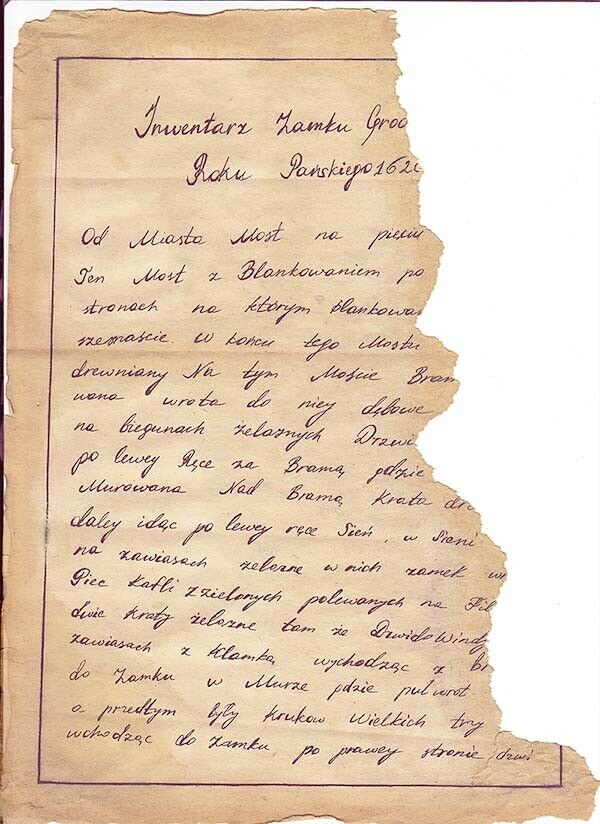 Inwentarz Zamku Groo
Roku Pańskiego 162
Od Miasta Most na pięciu
Ten Most z Blankowaniem po
stronach na którym blankowa
szesnaście. W końcu tego Mostu
drewniany Na tym Moście Bram
wana wrota do niey dębowe
na biegunach żelaznych Drzwi
po lewey Ręce za Bramą gdzie
Murowana Nad Bramą Krata dr
daley idąc po lewey ręce Sień, w Sieni
na zawiasach żelazne w nich zamek w
Piec Kafli zzielonych polewanych na Fil
dwie Kraty żelazne tam że Dzwi do Windy
zawiasach z Klamką wychodząc z br
do Zamku w Murze gdzie pul wrot
a przedtym były Krukow Wielkich try
wchodząc do Zamku po prawey stronie dzwi